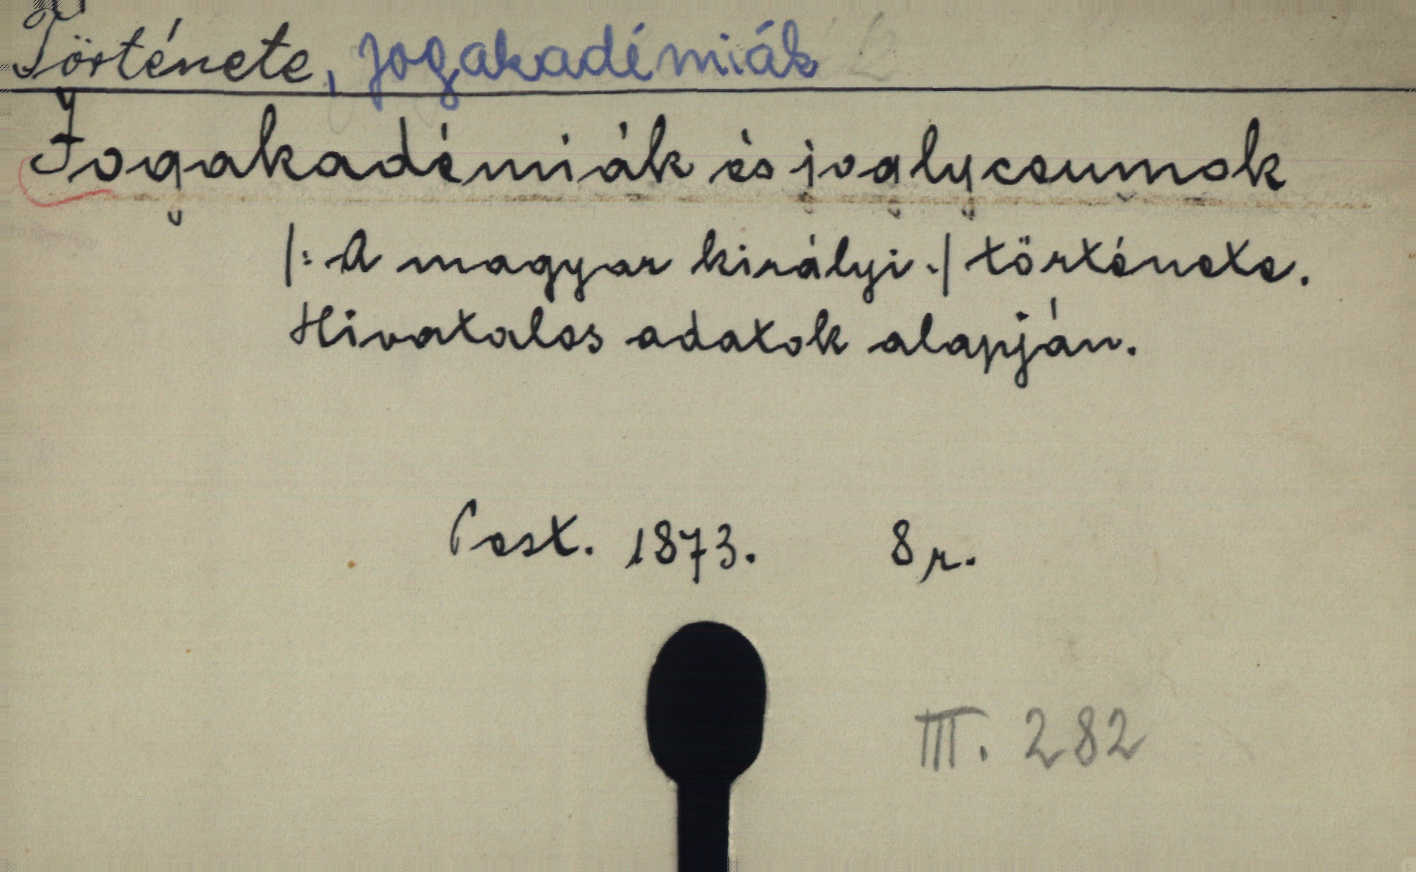 Története, jogakadémiák
Jogakadémiák és joglyceumok
|: A magyar királyi :| története.
Hivatalos adatok alapján.
Pest. 1873. 8 r.
III. 282